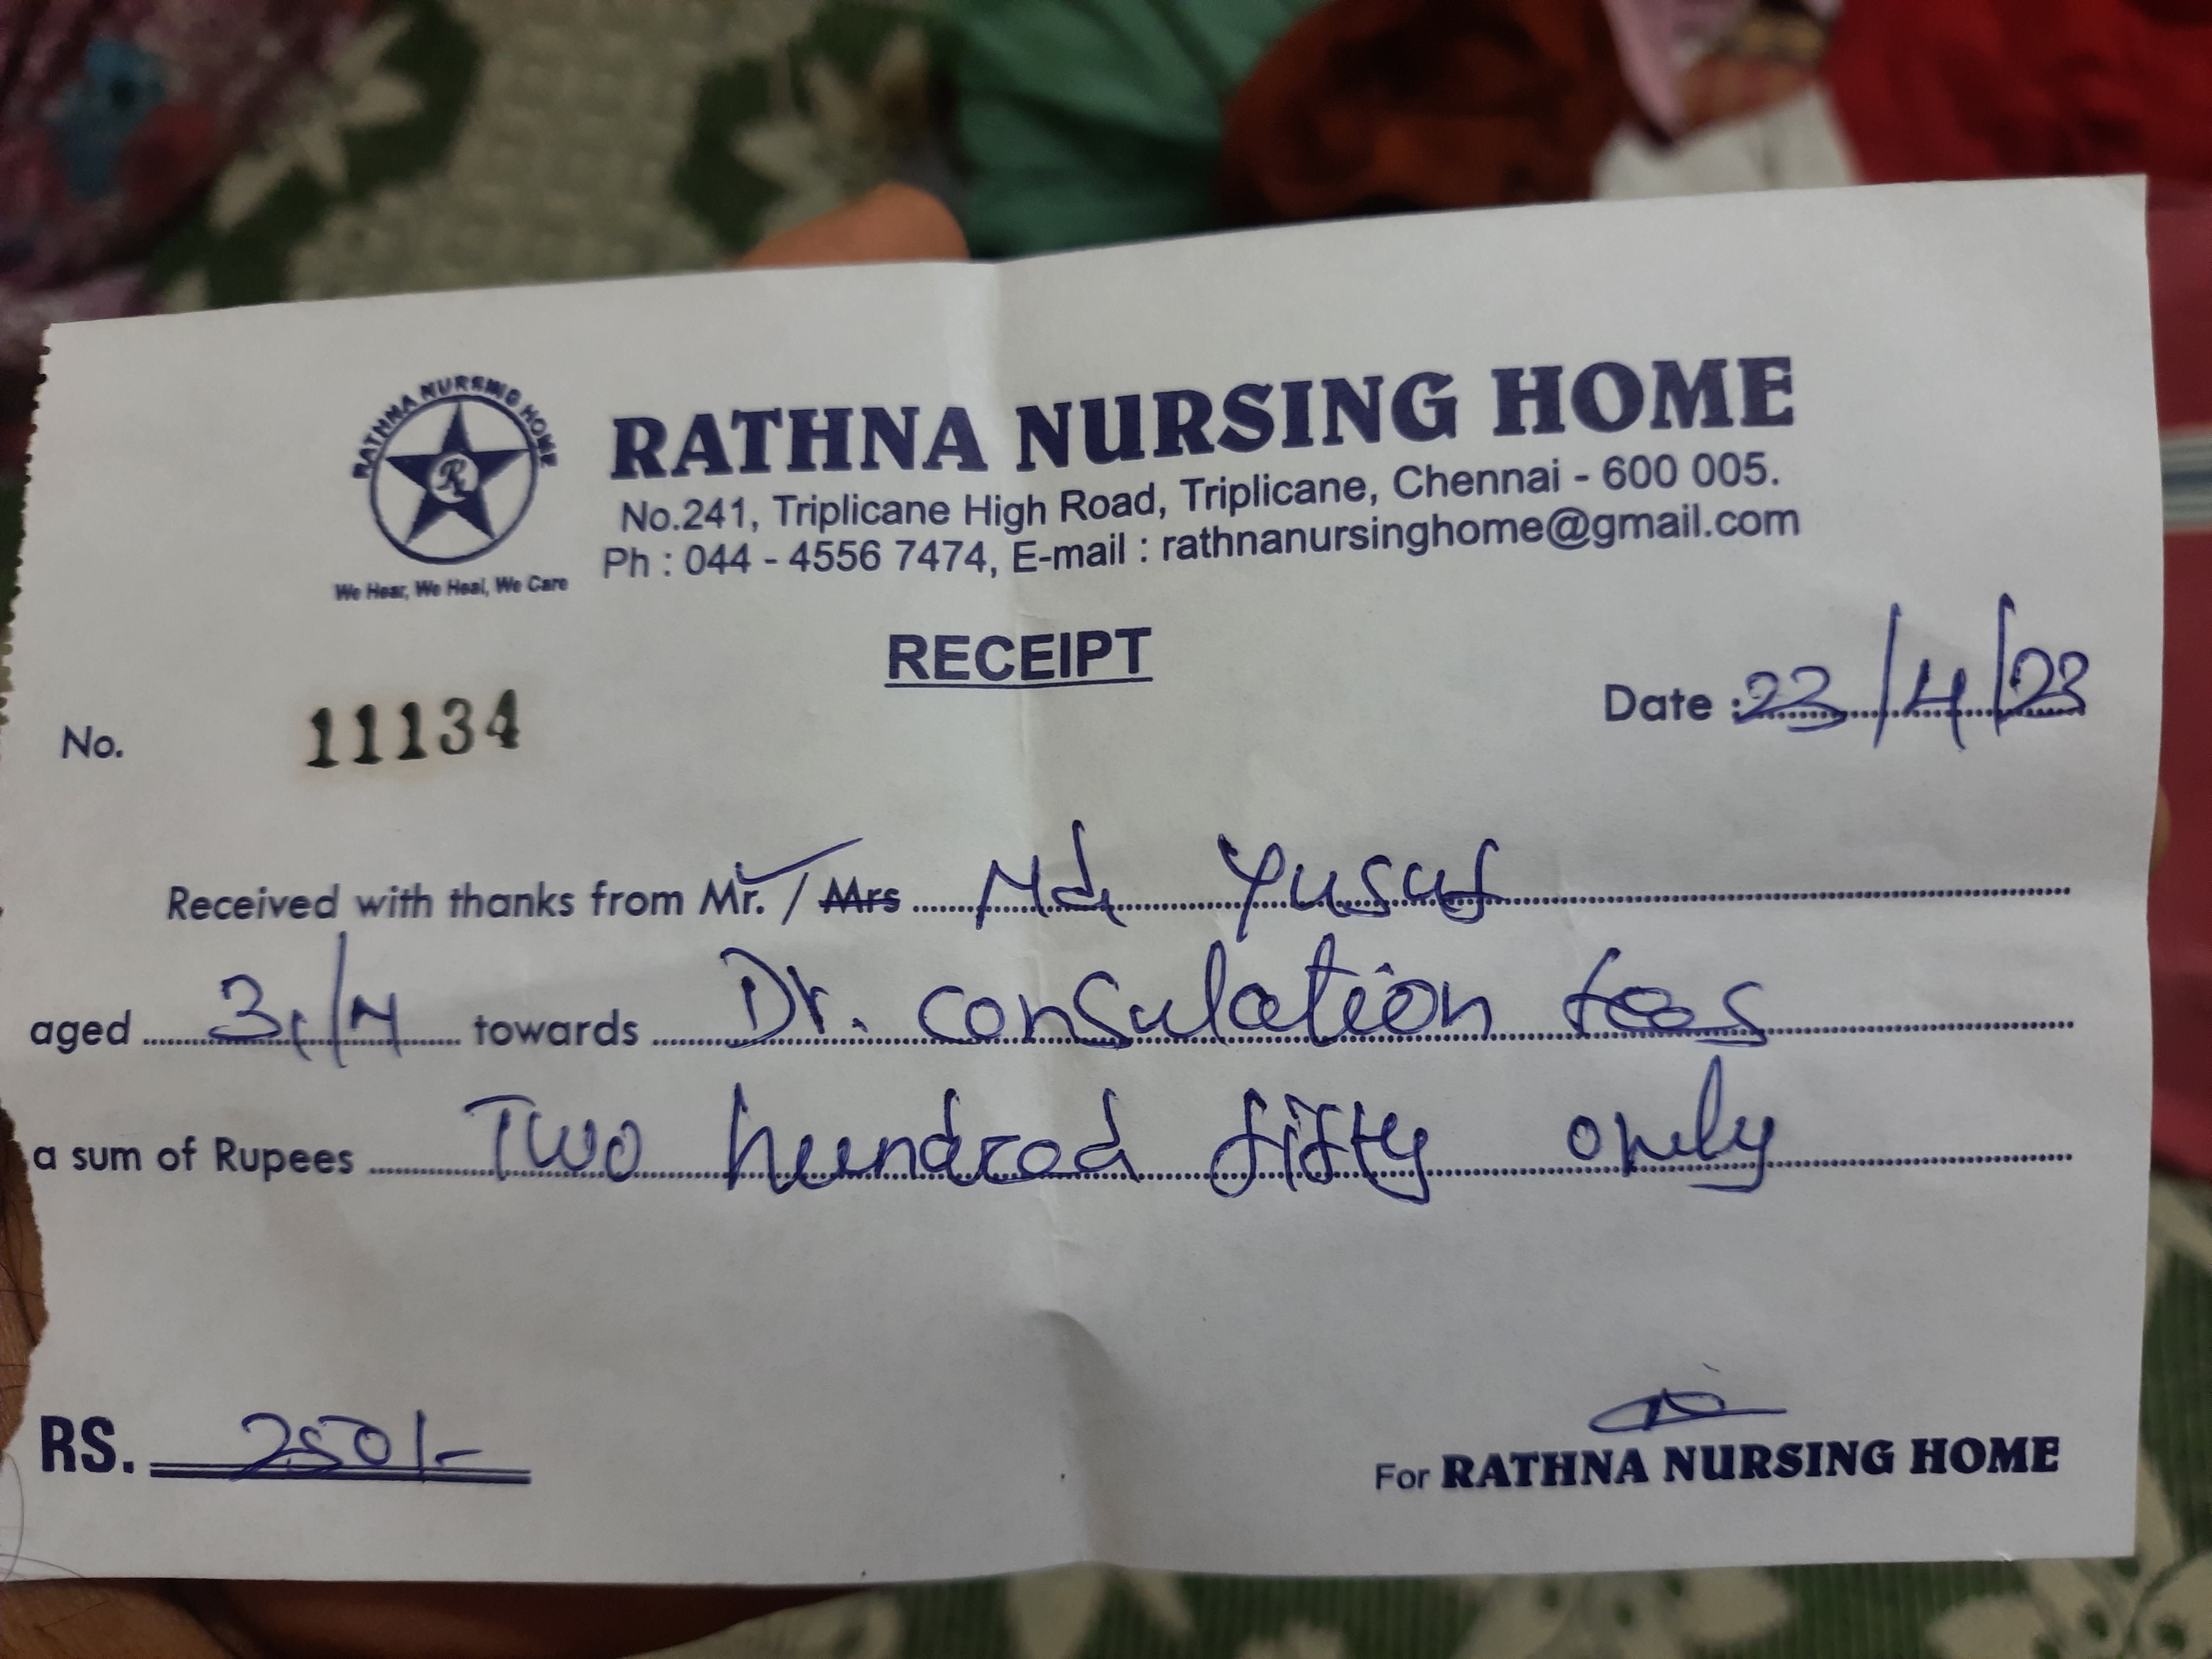 RATHNA NURSING HOME
R
We Hear, We Heal, We Care
RATHNA NURSING HOME
No.241, Triplicane High Road, Triplicane, Chennai - 600 005.
Ph : 044 - 4556 7474, E-mail : rathnanursinghome@gmail.com
RECEIPT
No. 11134
Date : 23/4/23
Received with thanks from Mr. / Mrs Md Yusuf
aged towards Dr. consulation fees
a sum of Rupees Two hundred fifty only
RS. 250/-
For RATHNA NURSING HOME